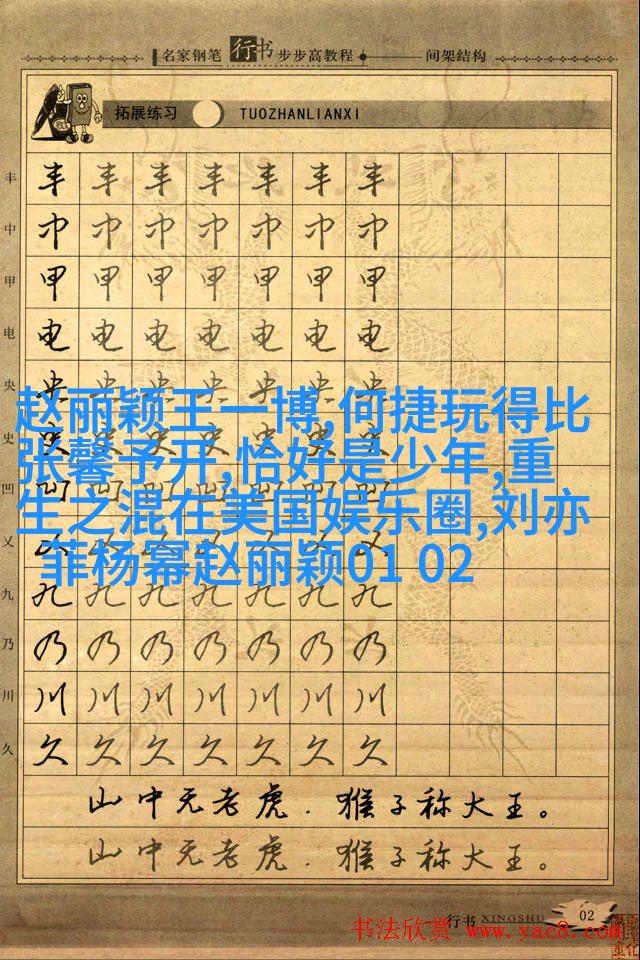 名家钢笔 行书 步步高教程 间架结构
拓展练习 TUOZHANLIANXI
丰 丰 丰 丰 丰 丰 丰 丰
中 中 中 中 中 中 中 中
甲 甲 甲 甲 甲 甲 甲 甲
电 电 电 电 电 电 电 电
央 央 央 央 央 央 央 央
赵丽颖王一博,何捷玩得比
史 史 史 史 史 史 史 史
张馨予开,恰好是少年,重
凹 凹 凹 凹 凹 凹 凹 凹
生之混在美国娱乐圈,刘亦
乂 乂 乂 乂 乂 乂 乂 乂
菲杨幂赵丽颖01 02
九 九 九 九 九 九 九 九
乃 乃 乃 乃 乃 乃 乃 乃
川 川 川 川 川 川 川 川
久 久 久 久 久 久 久 久
山中无老虎.猴子称大王。
山中无老虎.猴子称大王。
行书 XINGSHU 02
书法欣赏 www.yac8.com